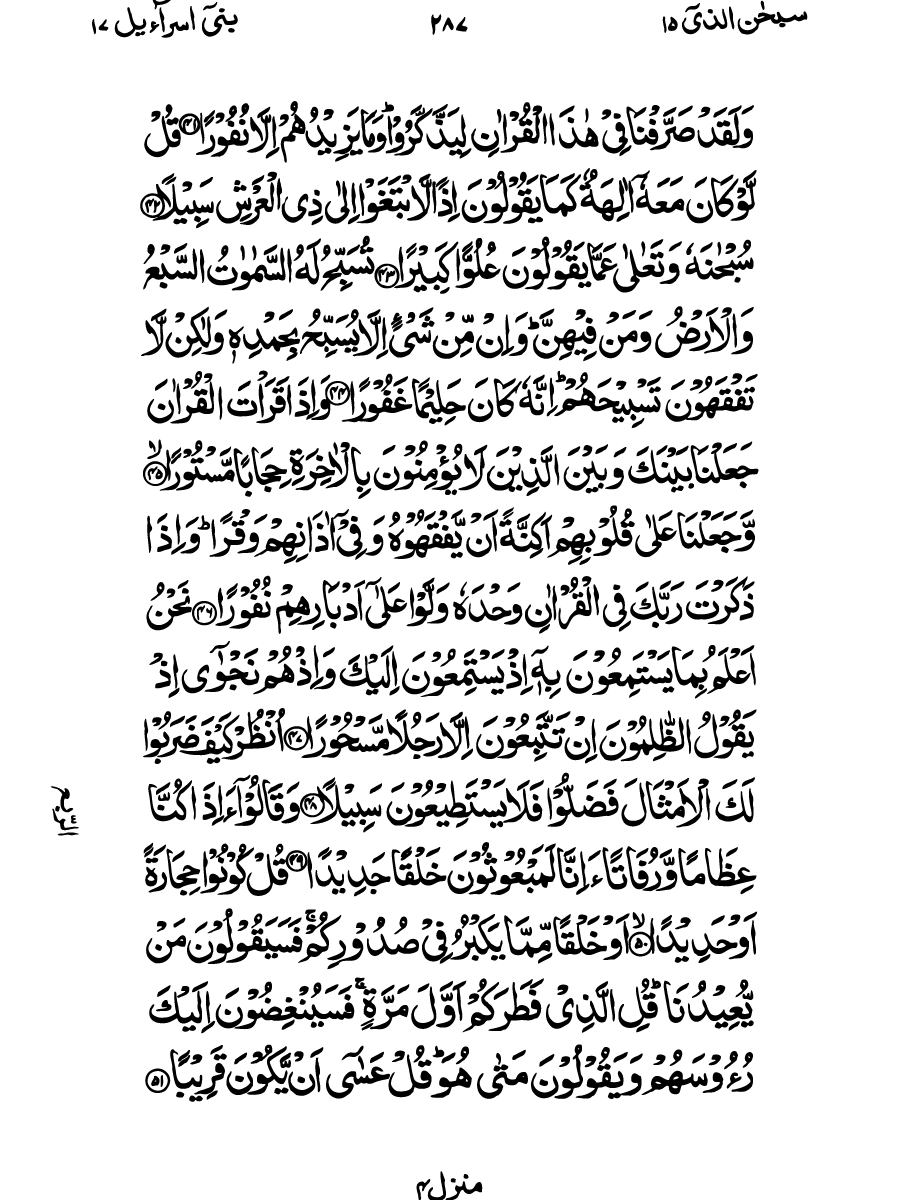 سبحٰن الذیٓ ۱۵ ۲۸۷ بنیٓ اسرآءیل ۱۷
وَلَقَدْ صَرَّفْنَا فِیْ هٰذَا الْقُرْاٰنِ لِیَذَّكَّرُوْا ؕ وَمَا یَزِیْدُهُمْ اِلَّا نُفُوْرًا ۝۴۱ قُلْ
لَّوْ كَانَ مَعَهٗۤ اٰلِهَةٌ كَمَا یَقُوْلُوْنَ اِذًا لَّابْتَغَوْا اِلٰی ذِی الْعَرْشِ سَبِیْلًا ۝۴۲
سُبْحٰنَهٗ وَتَعٰلٰی عَمَّا یَقُوْلُوْنَ عُلُوًّا كَبِیْرًا ۝۴۳ تُسَبِّحُ لَهُ السَّمٰوٰتُ السَّبْعُ
وَالْاَرْضُ وَمَنْ فِیْهِنَّ ؕ وَاِنْ مِّنْ شَیْءٍ اِلَّا یُسَبِّحُ بِحَمْدِهٖ وَلٰكِنْ لَّا
تَفْقَهُوْنَ تَسْبِیْحَهُمْ ؕ اِنَّهٗ كَانَ حَلِیْمًا غَفُوْرًا ۝۴۴ وَاِذَا قَرَاْتَ الْقُرْاٰنَ
جَعَلْنَا بَیْنَكَ وَبَیْنَ الَّذِیْنَ لَا یُؤْمِنُوْنَ بِالْاٰخِرَةِ حِجَابًا مَّسْتُوْرًا ۝۴۵ۙ
وَّجَعَلْنَا عَلٰی قُلُوْبِهِمْ اَكِنَّةً اَنْ یَّفْقَهُوْهُ وَفِیْۤ اٰذَانِهِمْ وَقْرًا ؕ وَاِذَا
ذَكَرْتَ رَبَّكَ فِی الْقُرْاٰنِ وَحْدَهٗ وَلَّوْا عَلٰۤی اَدْبَارِهِمْ نُفُوْرًا ۝۴۶ نَحْنُ
اَعْلَمُ بِمَا یَسْتَمِعُوْنَ بِهٖۤ اِذْ یَسْتَمِعُوْنَ اِلَیْكَ وَاِذْ هُمْ نَجْوٰۤی اِذْ
یَقُوْلُ الظّٰلِمُوْنَ اِنْ تَتَّبِعُوْنَ اِلَّا رَجُلًا مَّسْحُوْرًا ۝۴۷ اُنْظُرْ كَیْفَ ضَرَبُوْا
لَكَ الْاَمْثَالَ فَضَلُّوْا فَلَا یَسْتَطِیْعُوْنَ سَبِیْلًا ۝۴۸ وَقَالُوْۤا ءَاِذَا كُنَّا
الربع
عِظَامًا وَّرُفَاتًا ءَاِنَّا لَمَبْعُوْثُوْنَ خَلْقًا جَدِیْدًا ۝۴۹ قُلْ كُوْنُوْا حِجَارَةً
اَوْ حَدِیْدًا ۝۵۰ۙ اَوْ خَلْقًا مِّمَّا یَكْبُرُ فِیْ صُدُوْرِكُمْ ۚ فَسَیَقُوْلُوْنَ مَنْ
یُّعِیْدُنَا ؕ قُلِ الَّذِیْ فَطَرَكُمْ اَوَّلَ مَرَّةٍ ۚ فَسَیُنْغِضُوْنَ اِلَیْكَ
رُءُوْسَهُمْ وَیَقُوْلُوْنَ مَتٰی هُوَ ؕ قُلْ عَسٰۤی اَنْ یَّكُوْنَ قَرِیْبًا ۝۵۱
منزل ۴